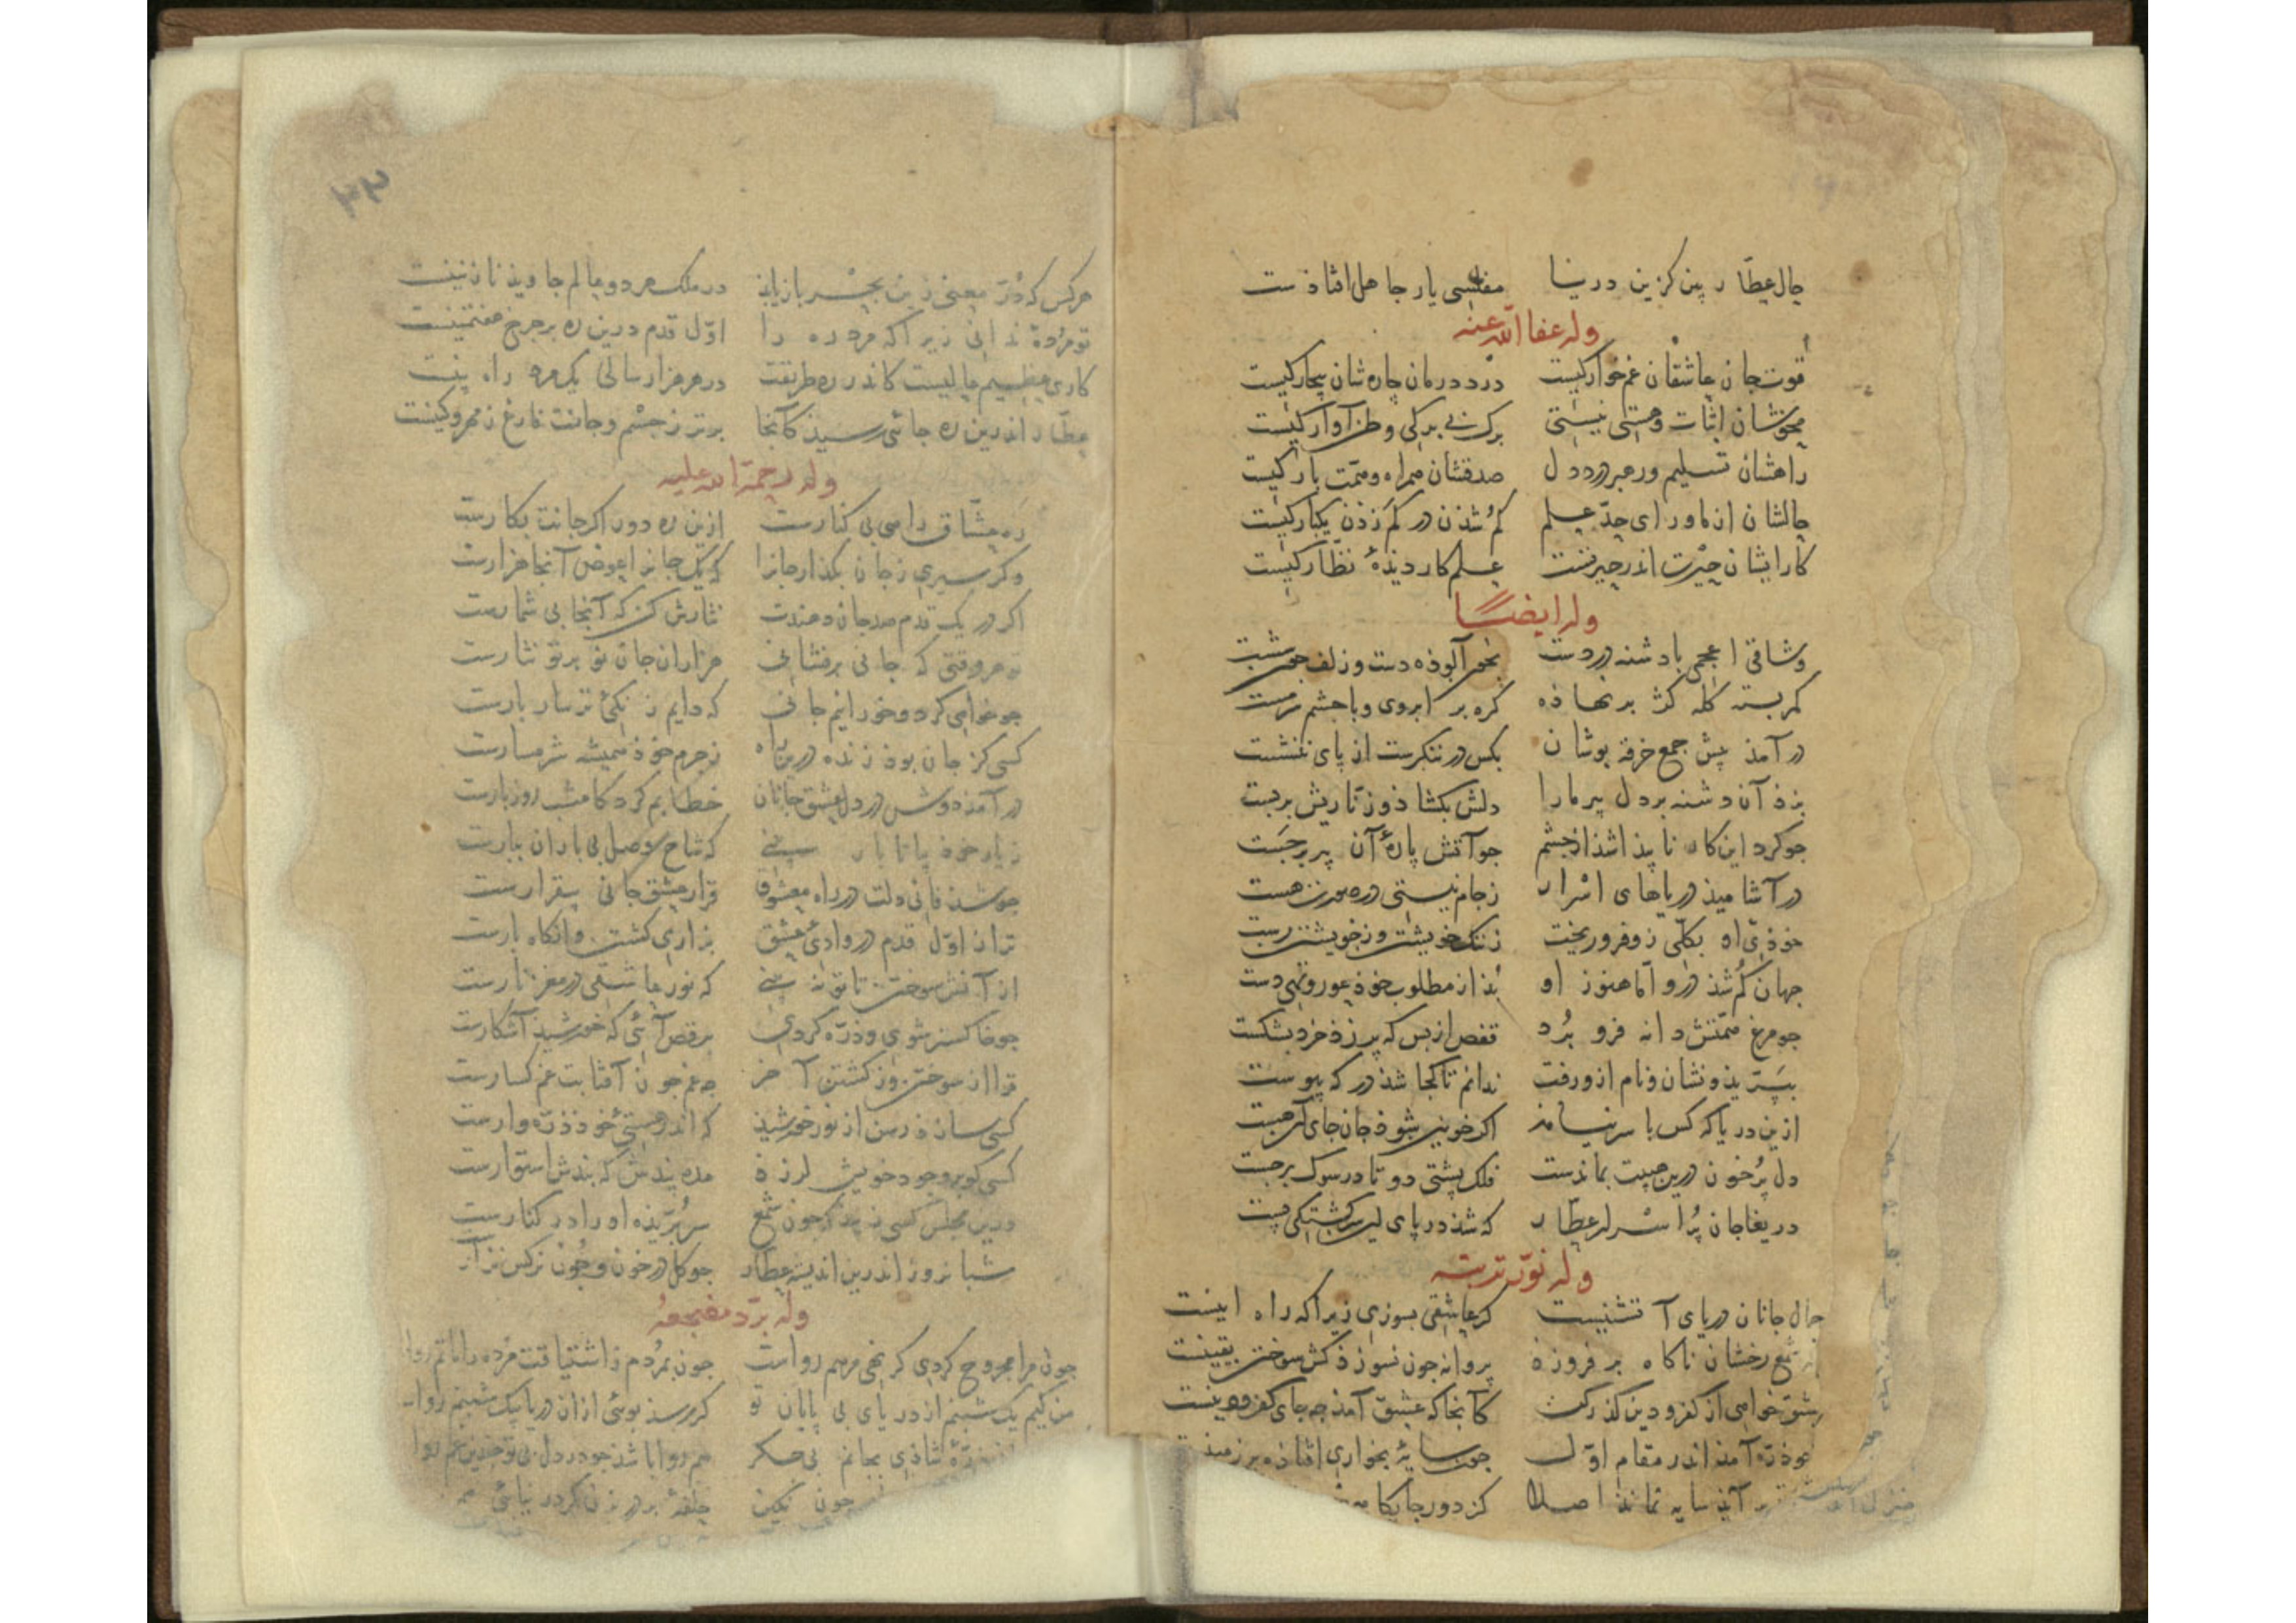 حال عطار بین کزین در نیا مفلسی یار جاهل افتاذست
وله عفا الله عنه
قوت جان عاشقان غم خوارکیست درد درمان چاره شان بیچارکیست
محوشان اثبات وهستی نیستی برک بی برکی وطن آوارکیست
راهشان تسلیم ورهبر درد دل صدقشان همراه وهمت بارکیست
حالشان از ماورای حد علم کم شذن در کم زذن یکبارکیست
کار ایشان حیرت اندر حیرتست علم کار دیذهٔ نظارکیست
وله ایضا
وشاقی اعجمی با دشنه در دست بخون آلوذه دست وزلف جون شست
کمر بسته کله کژ بر نهاذه کره بر ابروی وبا جشم سرمست
در آمذ پیش جمع خرقه پوشان بکس در ننکرست از پای ننشست
بزذ آن دشنه بر دل پیر مارا دلش بکشاذ وزناریش بر بست
جو کرد این کار ناپیذا شذ از جشم جو آتش پارهٔ آن پیر برجست
در آشامیذ دریاهای اسرار ز جام نیستی در صورت هست
خوذی او بکلی زو فرو ریخت ز ننک خویشتن وز خویشتن رست
جهان کم شذ درو اما هنوز او بذ از مطلوب خوذ عور وتهی دست
جو مرغ همتش دانه فرو برد قفص از بس که پر زذ خرد بشکست
بپرید ونشان ونام ازو رفت ندانم تا کجا شذ در که پیوست
ازین دریا که کس با سر نیامذ اکر خونین شوذ جان جای آن هست
دل پر خون درین هیبت بماندست فلک پشتی دوتا در سوک بر جست
دریغا جان پر اسرار عطار که شذ در پای این سرکشتکی پست
وله نور تربته
جمال جانان دریای آتشینست کر عاشقی بسوزی زیرا که راه اینست
شمع رخشان ناکاه بر فروزذ پروانه جون نسوزذ کش سوختن یقینست
عشق خواهی از کفر ودین کذر کن کآنجا که عشق آمذ چه جای کفر ودینست
ذره آمذ اندر مقام اول جون سایهٔ بخواری افتاذه بر زمینست
بر آیذ سایه نماند اصلا کز دور جایکا
۳۳
هرکس که در معنی زین بحر باز یابذ در ملک هر دو عالم جاویذ نازنینست
تو مردهٔ ندانی زیرا که مرد ره را اول قدم درین ره بر جرخ هفتمینست
کاری عظیم عالیست کاندر ره طریقت در هر هزار سالی یک مرد راه بینست
عطار اندرین ره جائی رسیذ کآنجا برتر ز جشم وجانت فارغ ز مهر وکینست
وله رحمة الله علیه
ره عشاق راهی بی کنارست ازین ره دور اکر جانت بکارست
وکر سیری ز جان بکذار جانرا که یک جانرا عوض آنجا هزارست
اکر در یک قدم صد جان دهندت نثارش کن که آنجا بی شمارست
هر وقتی که جانی برفشانی هزاران جان نو بر تو نثارست
جو خواهی کرد وخود رانیم جانی که دایم ز نکی تر سار بارست
کسی کز جان بوذ زنده درین راه ز جرم خوذ همیشه شرمسارست
در آمذ دوش در دل عشق جانان خطابم کرد کامشب روز بارست
ز یار خوذ بیا تا یار بینی که شاخ وصل بی باران ببارست
جو شذ فانی دلت در راه معشوق قرار عشق جانی بیقرارست
ترا از اول قدم در وادی عشق بزاری کشتن وآنکاه بارست
از آتش سوختن تا تو نه بینی که نور عاشقی در مغز نارست
جو خاکستر شوی وذره کردی برقص آئی که خورشیذ آشکارست
ترا از سوختن وز کشتن آخر جه غم جون آفتابت غم کسارست
کسی سازذ رسن از نور خورشیذ که اندر هستئ خوذ ذره وارست
کسی کو بر وجود خویش لرزذ مده پندش که بندش استوارست
درین مجلس کسی زیبذ که جون شمع سر بریذه او را در کنارست
شبانروز اندرین اندیشه عطار جو کل در خون وجون نرکس نزار
وله برد مضجعه
جون مرا مجروح کردی کر کنی مرهم رواست جون بمردم ز اشتیاقت مرده را ماتم روا
من کیم یک شبنم از دریای بی پایان تو کر رسذ بوئی از آن دریا بیک شبنم روا
ذرهٔ شاذی بجانم بی جکر هم روا باشذ جو در دل بی تو جندین غم روا
جون نکین حلقهٔ بر در زن کر در نیائی هم